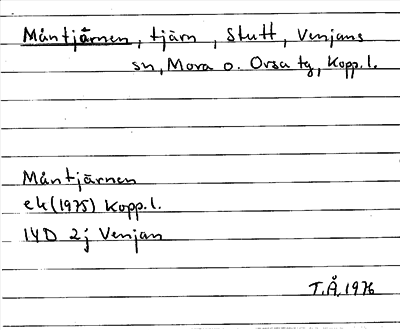 Måntjärnen, tjärn, Stutt, Venjans
sn, Mora o. Orsa tg, Kopp. l.
Måntjärnen
ek (1975) Kopp. l.
14D 2j Venjan
T.Å. 1976